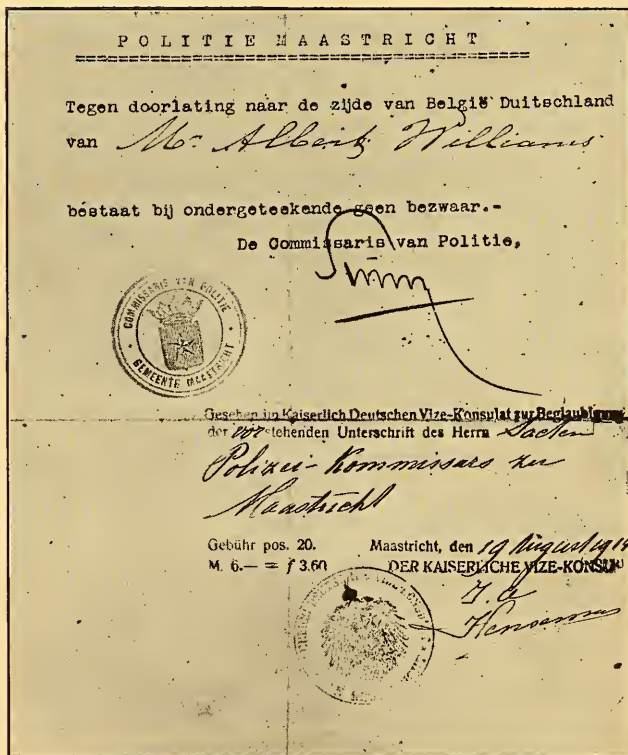 POLITIE MAASTRICHT
Tegen doorlating naar de zijde van België Duitschland
van Mr Albert Williams
bestaat bij ondergeteekende geen bezwaar.-
De Commissaris van Politie,
COMMISSARIS VAN POLITIE
GEMEENTE MAASTRICHT
Gesehen im Kaiserlich Deutschen Vize-Konsulat zur Beglaubigung
der vorstehenden Unterschrift des Herrn
Polizei-Kommissars zu
Maastricht
Gebühr pos. 20. Maastricht, den 19 August 1914
M. 6.— = f 3.60 DER KAISERLICHE VIZE-KONSUL
J. A.